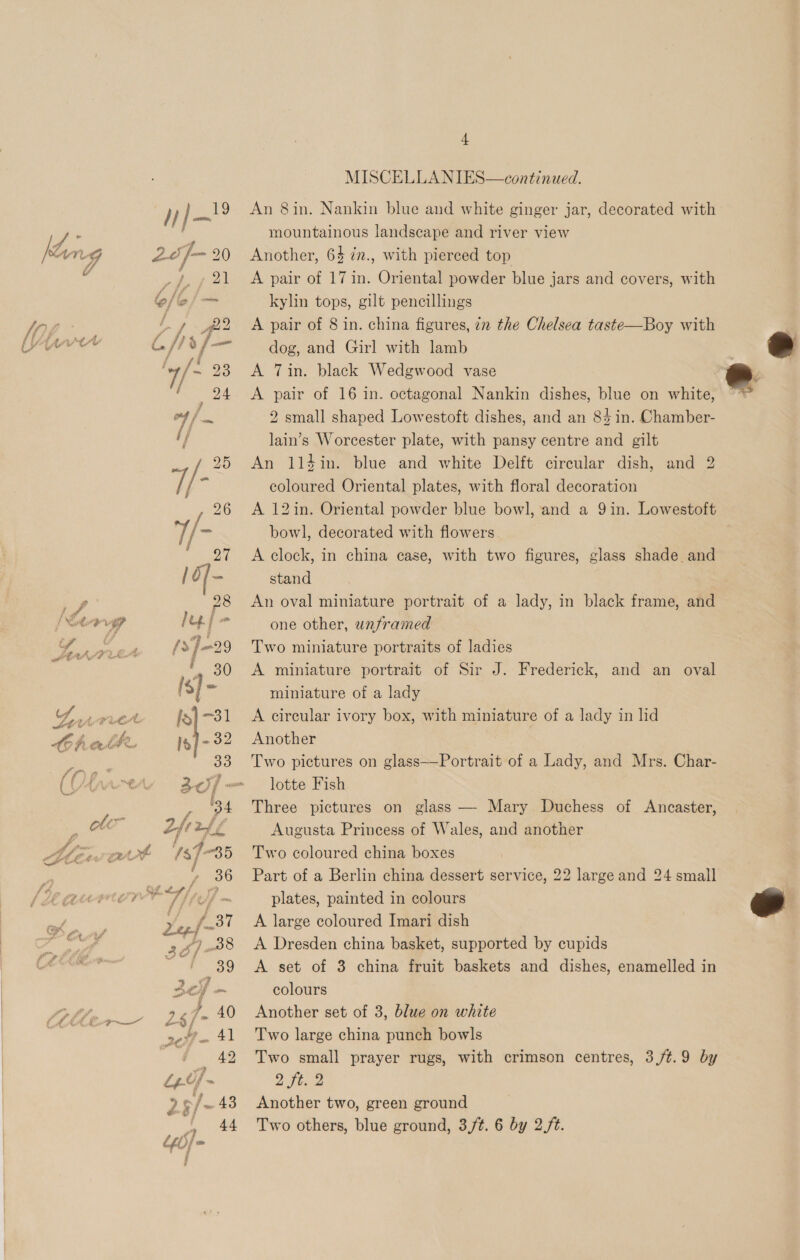 4
MISCELLANIES—continued.
11/- 19 An 8 in. Nankin blue and white ginger jar, decorated with
mountainous landscape and river view
King 20/- 20 Another, 6½ in., with pierced top
6/6/- 21 A pair of 17 in. Oriental powder blue jars and covers, with
kylin tops, gilt pencillings
22 A pair of 8 in. china figures, in the Chelsea taste—Boy with
dog, and Girl with lamb
7/- 23 A 7 in. black Wedgwood vase
24 A pair of 16 in. octagonal Nankin dishes, blue on white,
2 small shaped Lowestoft dishes, and an 8½ in. Chamber-
lain's Worcester plate, with pansy centre and gilt
7/- 25 An 11½ in. blue and white Delft circular dish, and 2
coloured Oriental plates, with floral decoration
7/- 26 A 12 in. Oriental powder blue bowl, and a 9 in. Lowestoft
bowl, decorated with flowers
27 A clock, in china case, with two figures, glass shade and
10/- stand
King 14/- 28 An oval miniature portrait of a lady, in black frame, and
one other, unframed
15/- 29 Two miniature portraits of ladies
15/- 30 A miniature portrait of Sir J. Frederick, and an oval
miniature of a lady
31 A circular ivory box, with miniature of a lady in lid
15/- 32 Another
33 Two pictures on glass—Portrait of a Lady, and Mrs. Char-
30/- lotte Fish
do 34 Three pictures on glass — Mary Duchess of Ancaster,
Augusta Princess of Wales, and another
Stewart 15/- 35 Two coloured china boxes
36 Part of a Berlin china dessert service, 22 large and 24 small
plates, painted in colours
24/- 37 A large coloured Imari dish
30/- 38 A Dresden china basket, supported by cupids
39 A set of 3 china fruit baskets and dishes, enamelled in
30/- colours
25/- 40 Another set of 3, blue on white
20/- 41 Two large china punch bowls
42 Two small prayer rugs, with crimson centres, 3 ft. 9 by
40/- 2 ft. 2
25/- 43 Another two, green ground
44 Two others, blue ground, 3 ft. 6 by 2 ft.
40/-